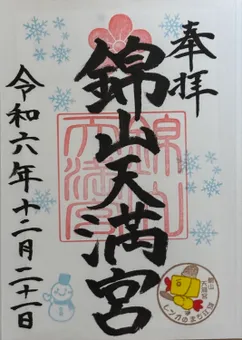 奉拝
錦山天満宮
令和六年十二月二十一日
錦山天満宮